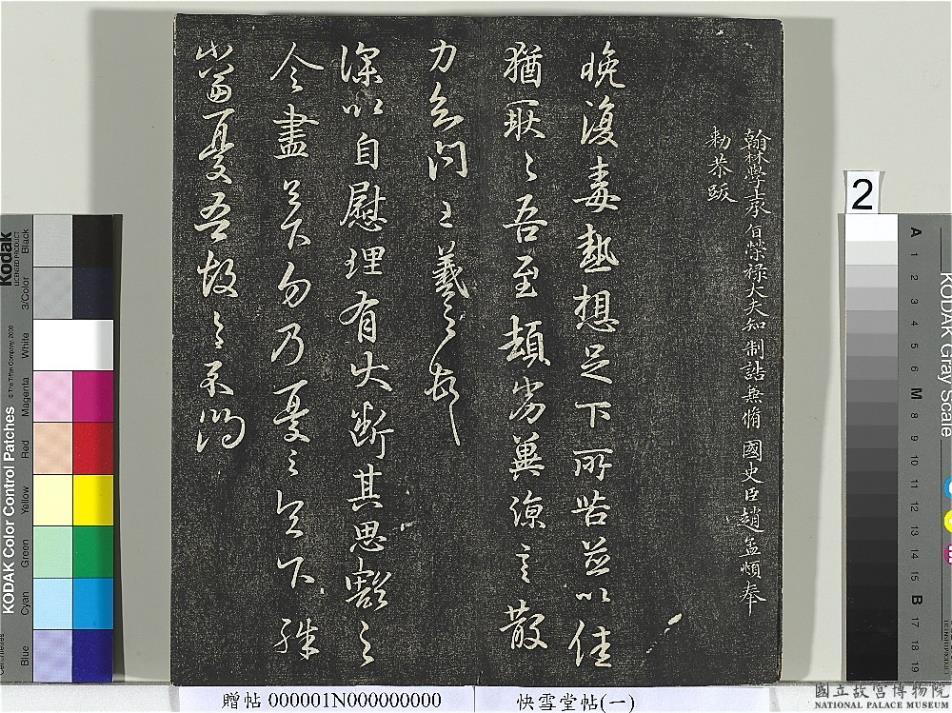 翰林學士承旨榮祿大夫知制誥兼脩國史臣趙孟頫奉
勑恭跋
晚復毒熱想足下所苦並以佳
猶耿耿吾至頓劣冀涼言散
力知問王羲之報
深以自慰理有大斷其思豁之
令盡足下勿乃憂之足下殊
當憂吾故之不得
2
贈帖 000001N000000000
快雪堂帖(一)
國立故宮博物院
NATIONAL PALACE MUSEUM
Kodak
LICENSED PRODUCT
KODAK Color Control Patches
Black
3/Color
White
Magenta
Red
Yellow
Green
Cyan
Blue
KODAK Gray Scale
A 1 2 3 4 5 6 M 8 9 10 11 12 13 14 15 B 17 18 19